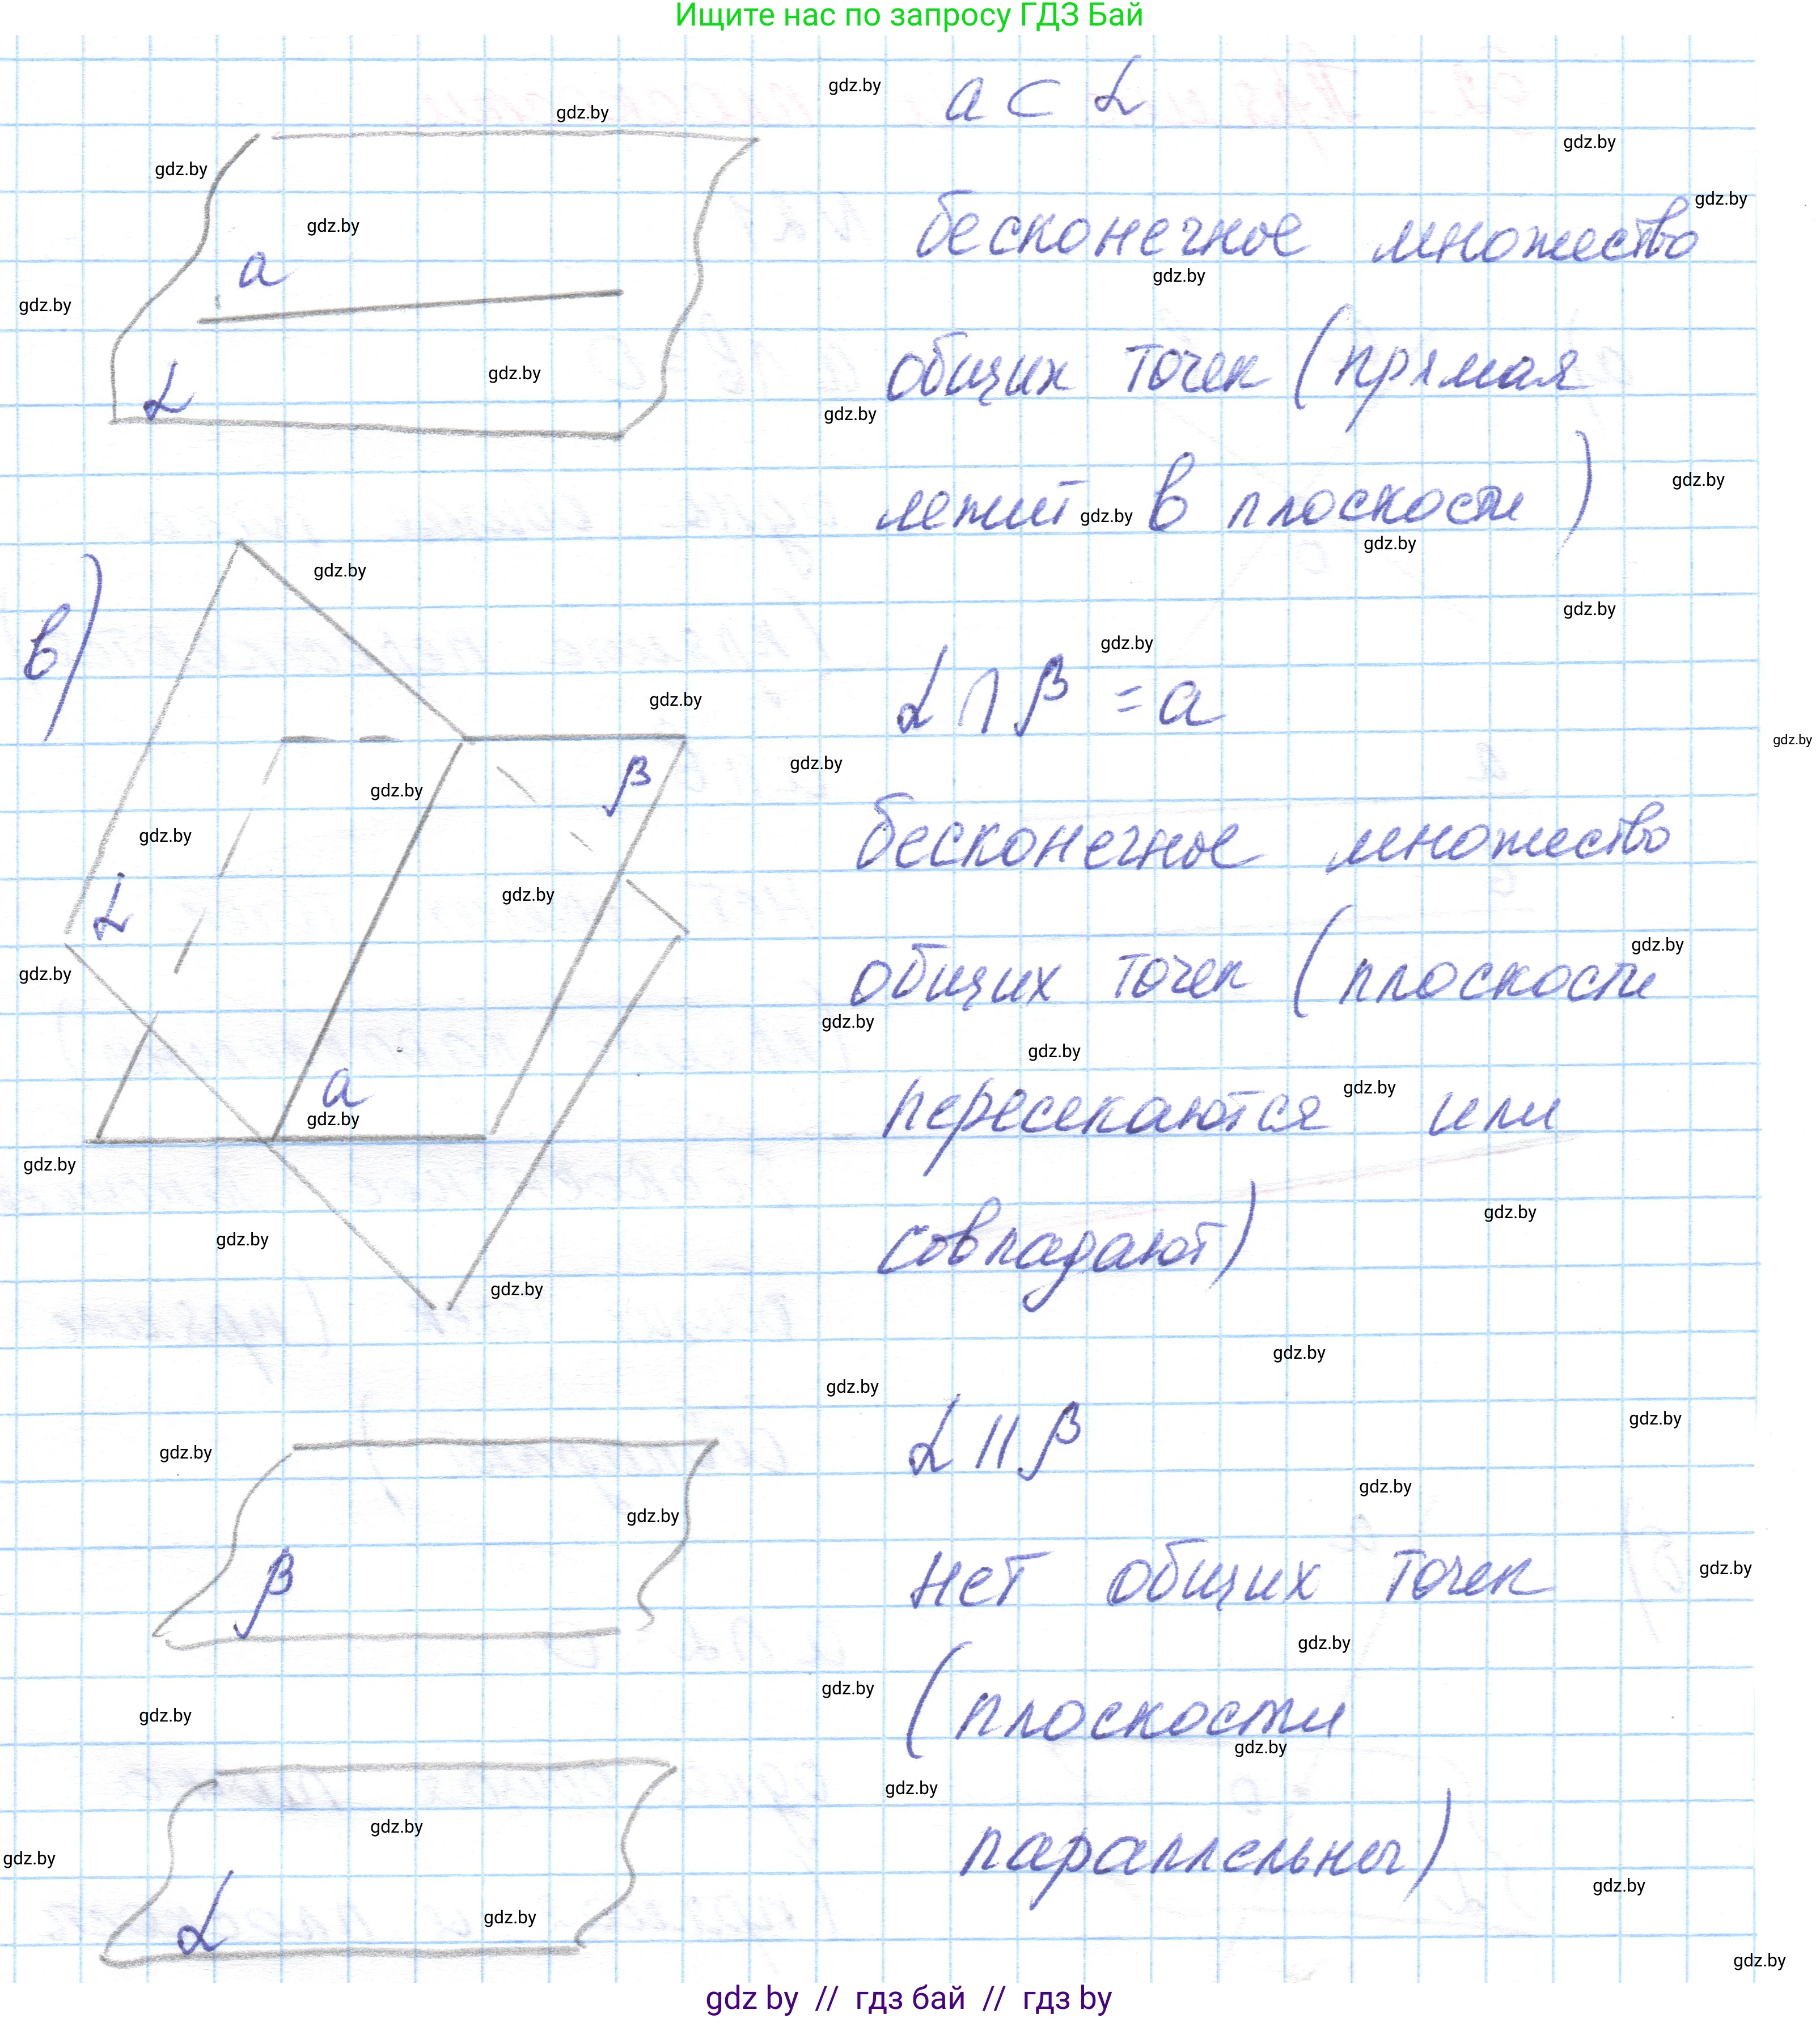 Ищите нас по запросу ГДЗ Бай
a ⊂ α
a
α
бесконечное множество
общих точек (прямая
лежит в плоскости)
в)
α
β
a
α ∩ β = a
бесконечное множество
общих точек (плоскости
пересекаются или
совпадают)
β
α
α || β
нет общих точек
(плоскости
параллельны)
gdz by // гдз бай // гдз by
gdz.by